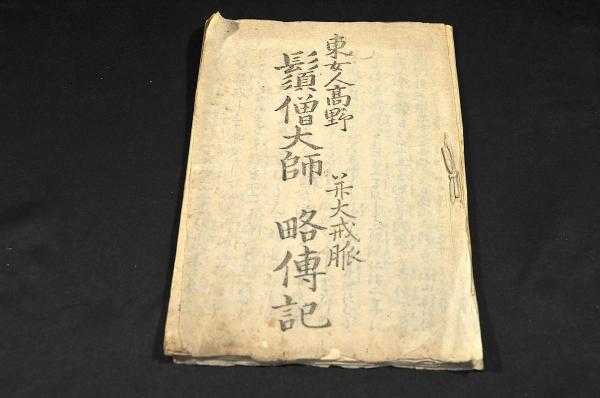 東女人高野
鬚僧大師 略傳記
并大戒脈